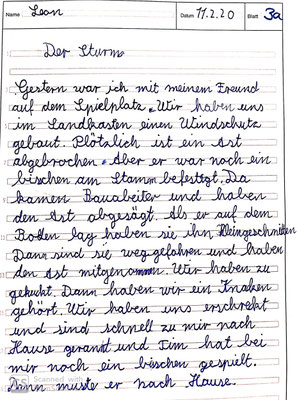 Name Leon Datum 11.2.20 Blatt 3a
Der Sturm
Gestern war ich mit meinem Freund
auf dem Spielplatz. Wir haben uns
im Sandkasten einen Windschutz
gebaut. Plötzlich ist ein Ast
abgebrochen. Aber er war noch ein
bischen am Stamm befestigt. Da
kamen Bauabeiter und haben
den Ast abgesägt. Als er auf dem
Boden lag haben sie ihn kleingeschnitten
Dann sind sie weg gefahren und haben
den Ast mitgenommen. Wir haben zu
gekukt. Dann haben wir ein Knaken
gehört. Wir haben uns erschrekt
und sind schnell zu mir nach
Hause gerannt und Tim hat bei
mir noch ein bischen gespielt.
Dann muste er nach Hause.
CS Scanned with